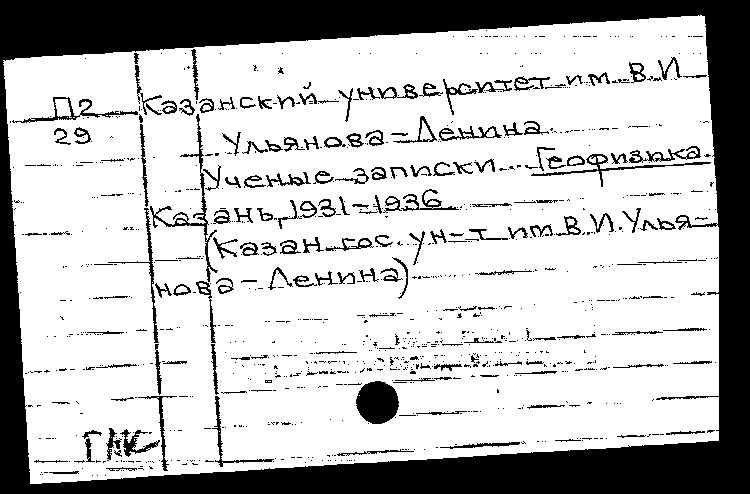 П2 Казанский университет им. В.И
29 Ульянова-Ленина.
Ученые записки... Геофизика.
Казань, 1931-1936
(Казан. гос. ун-т им В.И. Улья-
нова-Ленина)